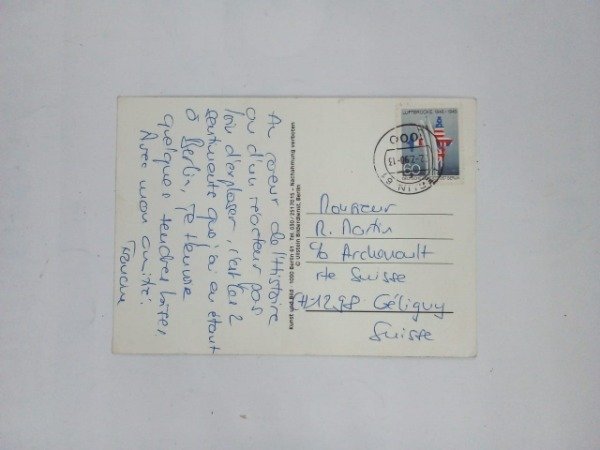 Au coeur de l'Histoire
ou d'un réacteur pas
loin d'exploser, c'est les 2
sentiments que j'ai en étant
à Berlin. Je t'envoie
quelques tendres baisers
Avec mon amitié.
Kunst und Bild 1000 Berlin 61 Tel. 030/2517015 - Nachahmung verboten
© Ullstein Bilderdienst, Berlin
LUFTBRÜCKE 1948-1949
60
1000
-2.90-13
BERLIN 61
Monsieur
R. Martin
c/o Archenault
rte Suisse
CH 1298 Céligny
Suisse